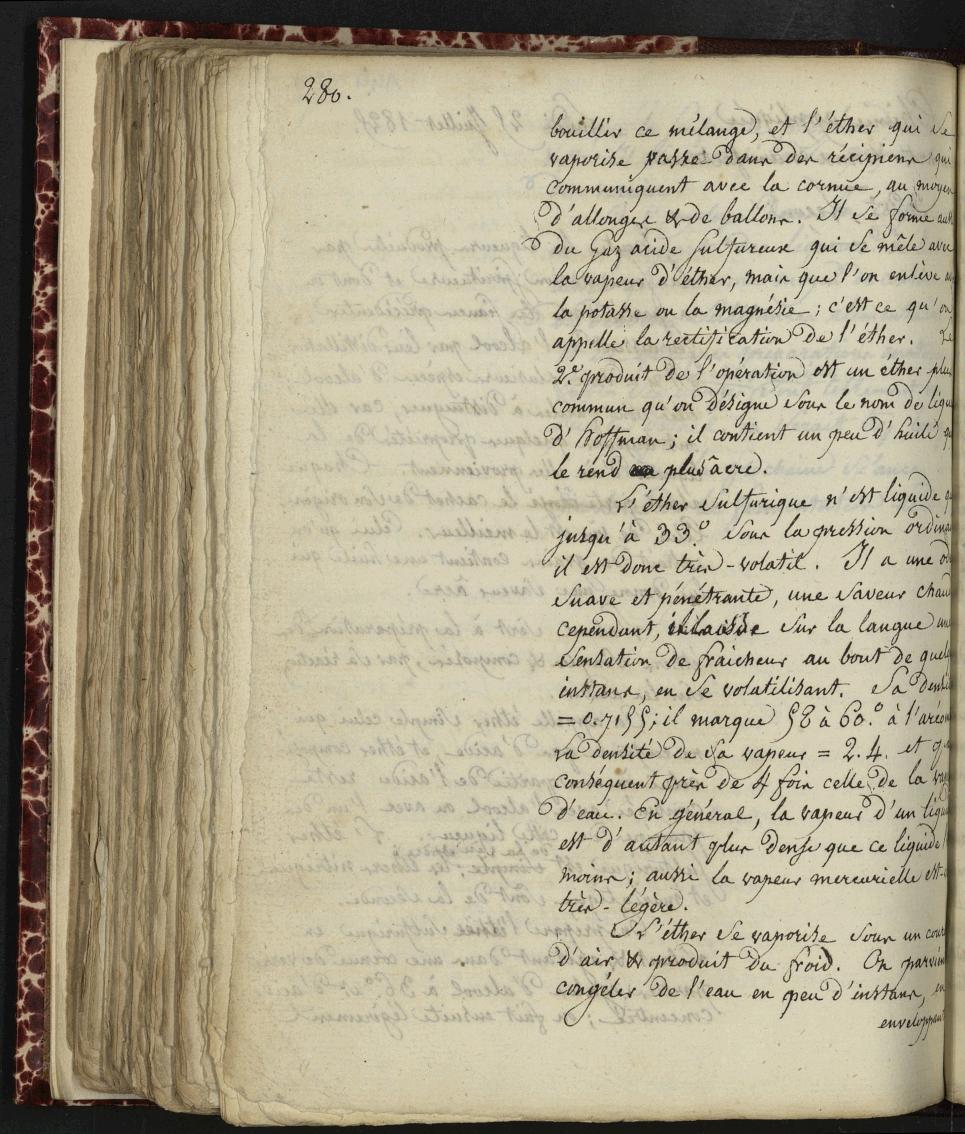 280.
bouillir ce mélange, et l'éther qui se
vaporise passe dans des récipiens qui
communiquent avec la cornue, au moyen
d'allonges & de ballons. Il se forme
du Gaz acide sulfureux qui se mêle avec
la vapeur d'éther, mais que l'on enlève
la potasse ou la magnésie ; c'est ce qu'on
appelle la rectification de l'éther. Le
2.e produit de l'opération est un éther plus
commun qu'on désigne sous le nom de
d'hoffman ; il contient un peu d'huile
le rend plus âcre.
L'éther sulfurique n'est liquide
jusqu'à 33.° sous la pression
il est donc très-volatil. Il a une
suave et pénétrante, une saveur
cependant, il laisse sur la langue
sensation de fraicheur au bout de
instans, en se volatilisant. Sa
= 0.7155 ; il marque 58 à 60.° à
La densité de sa vapeur = 2.4. et
conséquent près de 4 fois celle de la
d'eau. En général, la vapeur d'un
est d'autant plus dense que ce liquide
moins ; aussi la vapeur mercurielle
très-légère.
L'éther se vaporise sous un
d'air & produit du froid. On
congéler de l'eau en peu d'instans, en
enveloppant